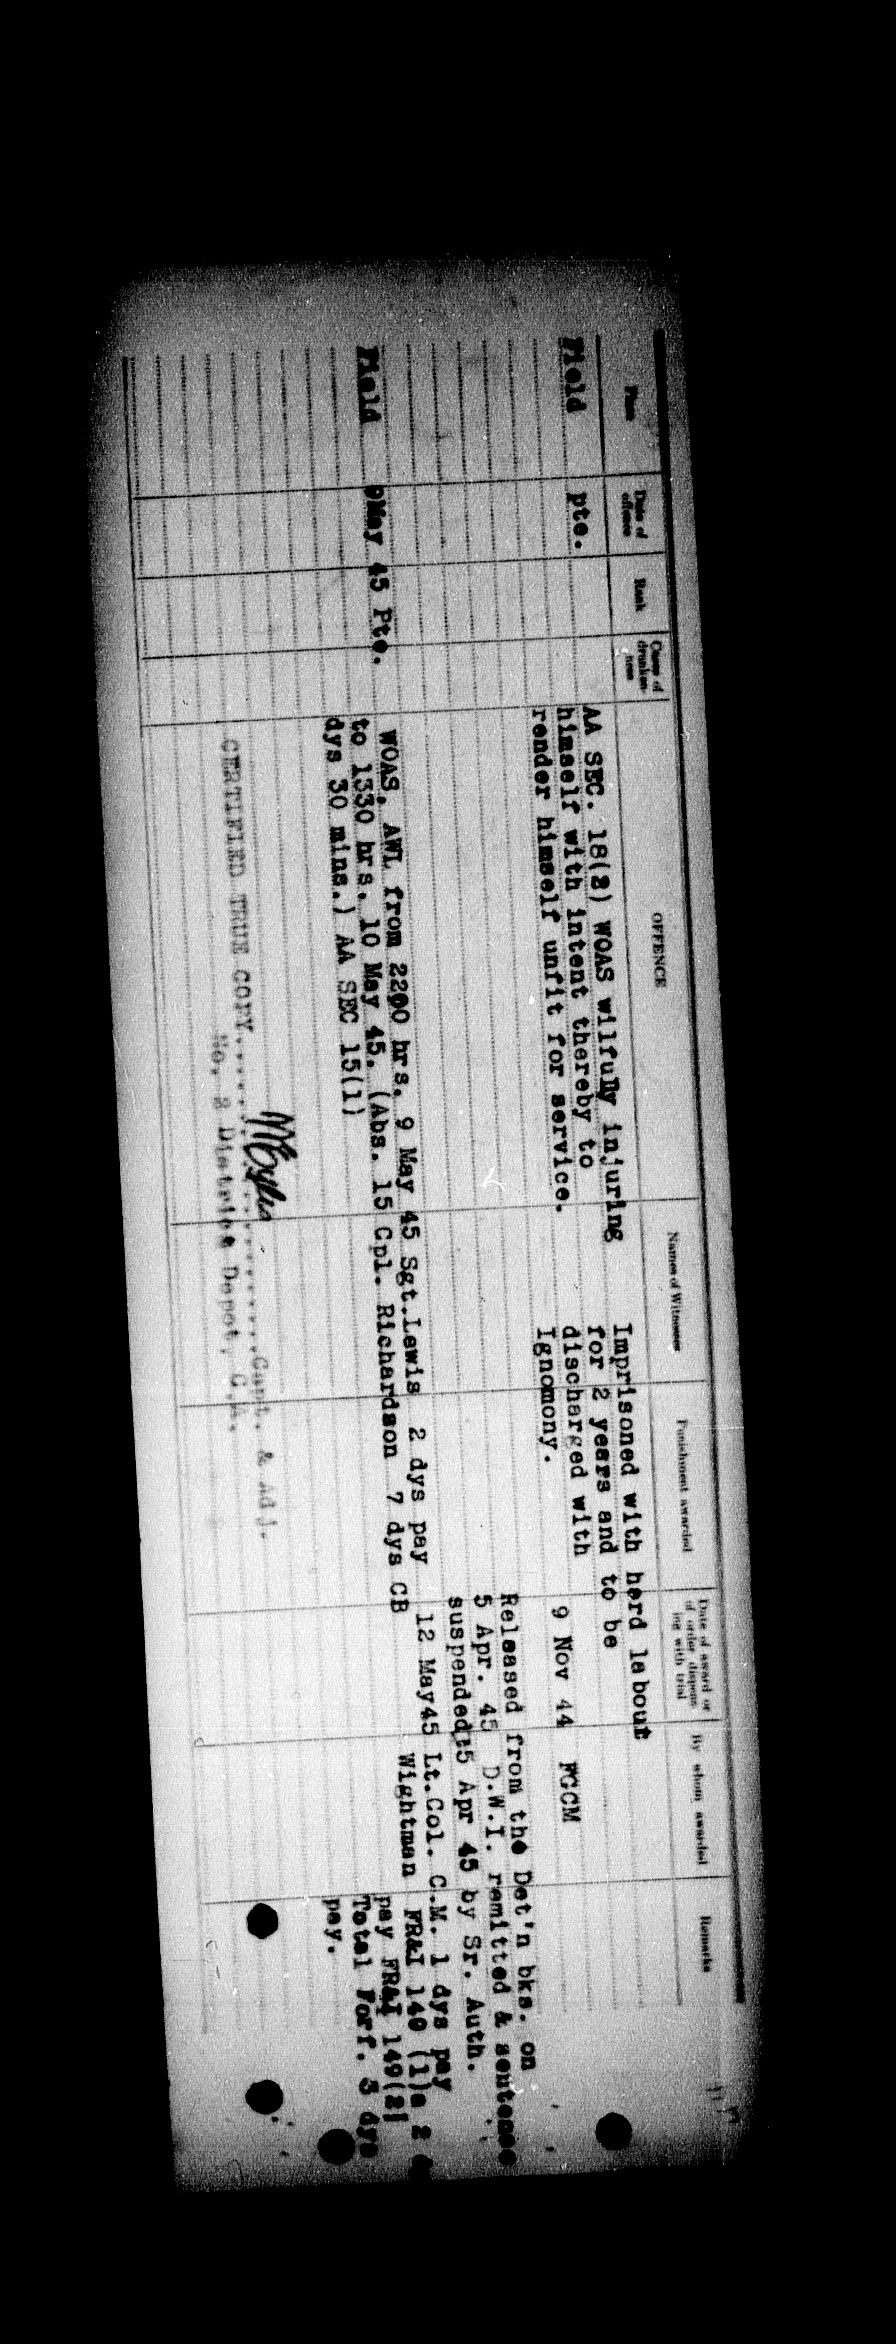 Place
Date of offence
Rank
Class of drunken-ness
OFFENCE
Names of Witnesses
Punishment awarded
Date of award or of order dispens-ing with trial
By whom awarded
Remarks
Field pte. AA SEC. 18(2) WOAS wilfully injuring
himself with intent thereby to
render himself unfit for service.
Imprisoned with hard labout
for 2 years and to be
discharged with
Ignomony.
9 Nov 44 FGCM
Released from the Det'n bks. on
5 Apr. 45 D.W.I. remitted & sentence
suspended 15 Apr 45 by Sr. Auth.
Field 9May 45 Pte. WOAS. AWL from 2200 hrs. 9 May 45 Sgt.Lewis 2 dys pay
to 1330 hrs. 10 May 45. (Abs. 15 Cpl. Richardson 7 dys CB
dys 30 mins.) AA SEC 15(1)
12 May45 Lt.Col. C.M. 1 dys pay
Wightman FR&I 140 (1)a 2
pay FR&I 149(2)
Total Forf. 5 dys
pay.
CERTIFIED TRUE COPY..........Capt. & Adj.
No. 2 District Depot, C.A.